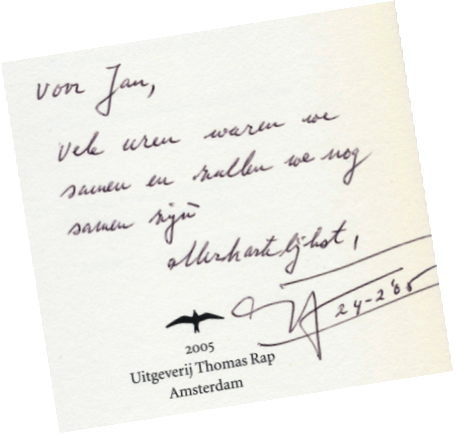 voor Jan,
Vele uren waren we
samen en zullen we nog
samen zijn
allerhartelijkst,
24-2'05
2005
Uitgeverij Thomas Rap
Amsterdam